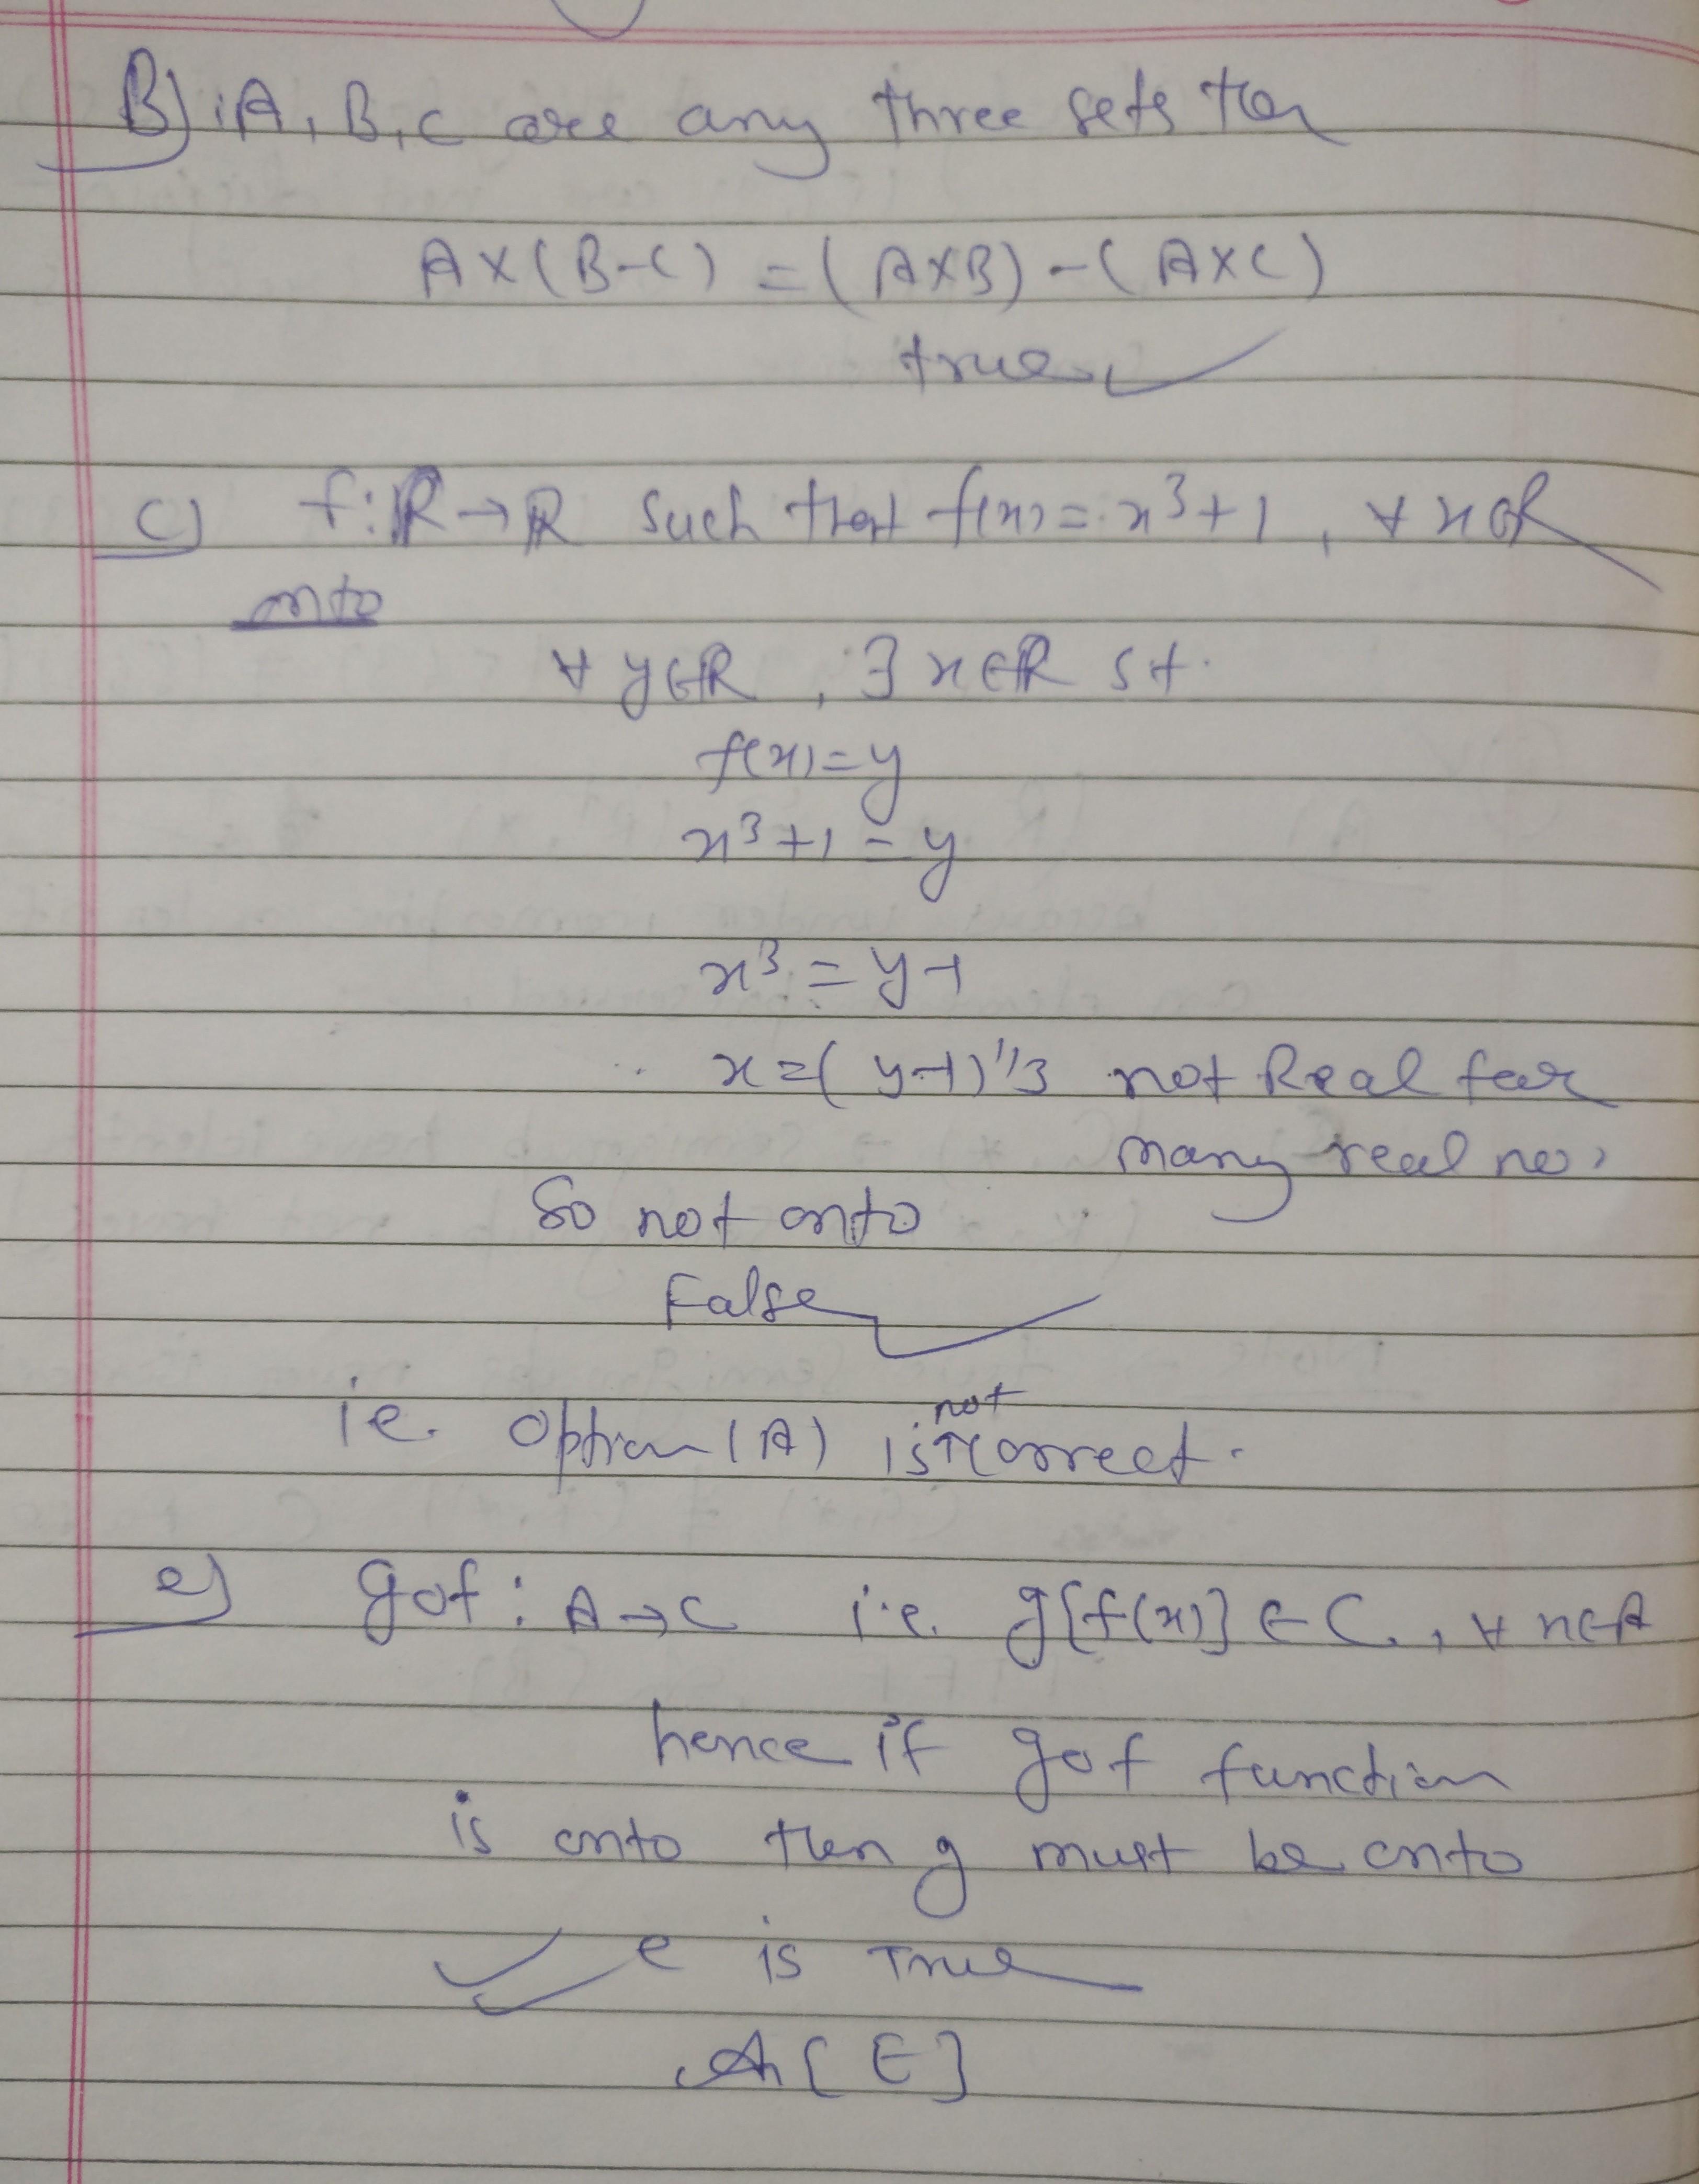 B) A, B, C are any three sets then
A×(B-C) = (A×B) - (A×C)
true
C) f: R→R such that f(x) = x³+1, ∀ x∈R
onto
∀ y∈R, ∃ x∈R st.
f(x)=y
x³+1 = y
x³ = y-1
x = (y-1)^1/3 not Real for
many real no.
So not onto
False
ie. option (A) is not correct.
e) gof: A→C i.e. g[f(x)] ∈ C, ∀ x∈A
hence if gof function
is onto then g must be onto
e is True
[E]